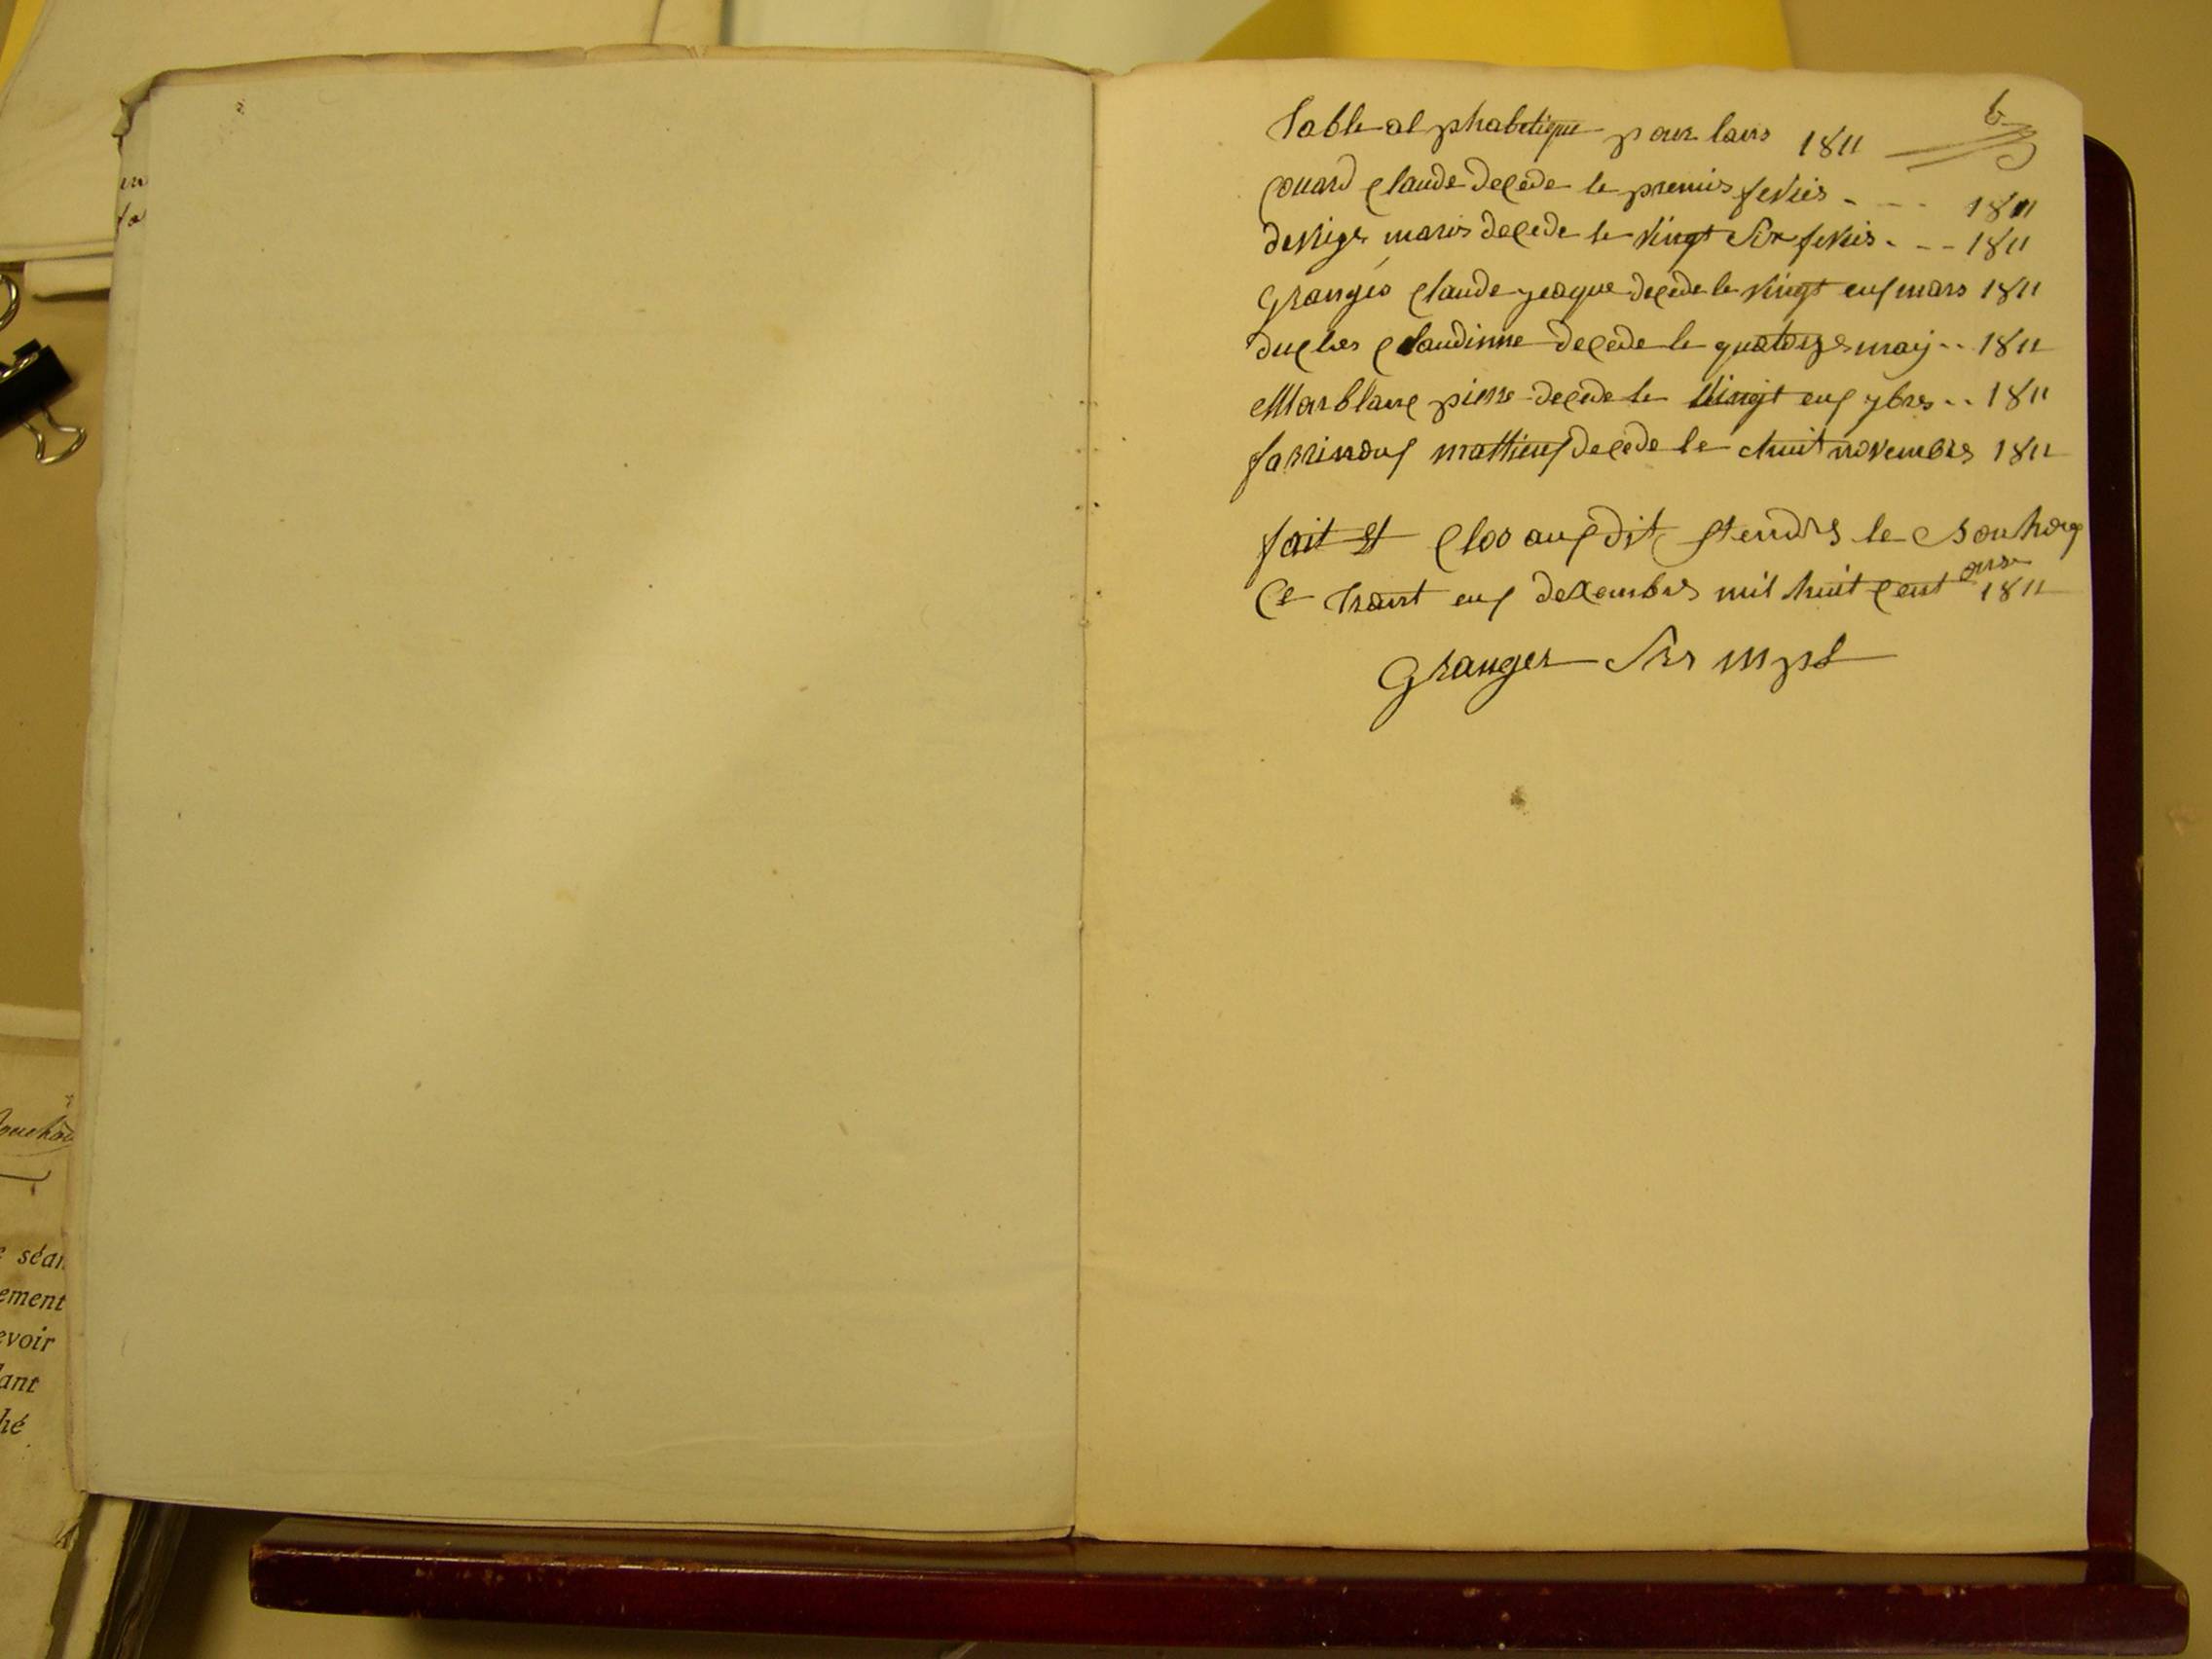 en
fa
Table alphabetique pour lans 1811
6
Couard Claude decede le premier fevrier - - - 1811
devige marie decede le vingt six fevrier - - - 1811
Granger Claude jeaque decede le vingt euf mars 1811
duclos Claudinne decede le quatorze may - - 1811
Marblanc pierre decede le vingt euf 7bre - - 1811
farrinouf mattieuf decede le huit novembre 1811
fait et clos aufdit st endre le
Ce trant euf decembre mil huit cent onse 1811
Granger
séan
ement
evoir
lant
hé